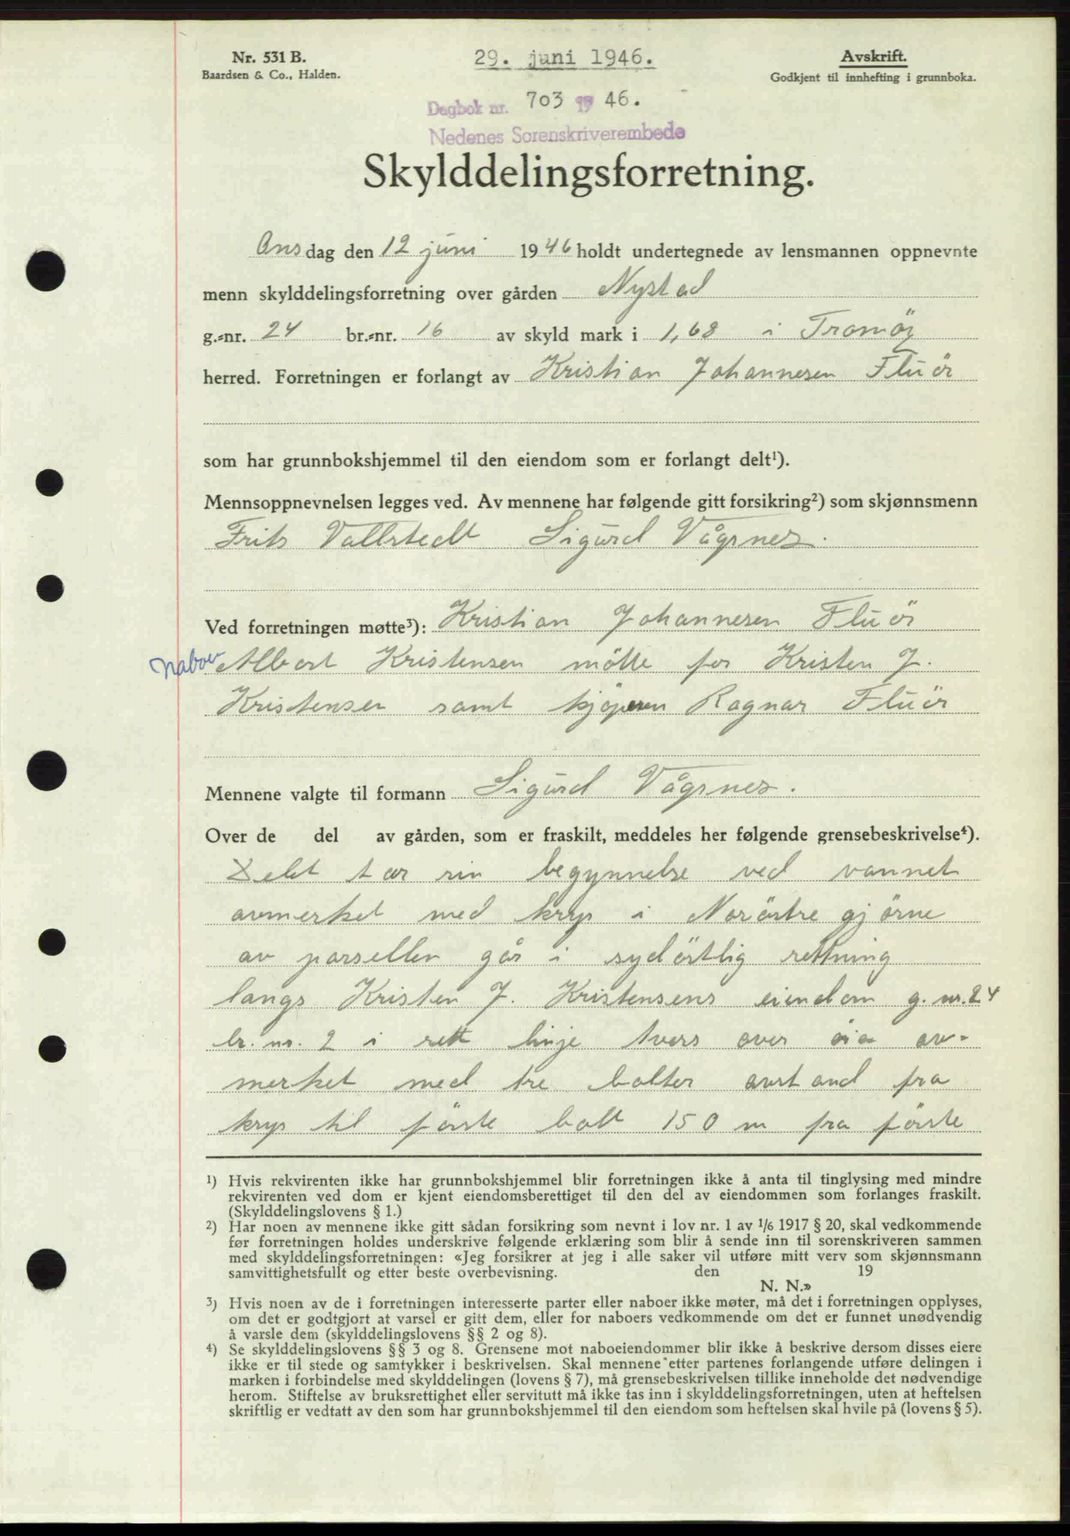 Nr. 531 B.
Baardsen & Co., Halden.
29. juni 1946.
Avskrift.
Godkjent til innhefting i grunnboka.
Dagbok nr. 703 19 46.
Nedenes Sorenskriverembede
Skylddelingsforretning.
Onsdag den 12 juni 1946 holdt undertegnede av lensmannen oppnevnte
menn skylddelingsforretning over gården Nystad
g.-nr. 24 br.-nr. 16 av skyld mark i 1,68 i Tromöy
herred. Forretningen er forlangt av Kristian Johannesen Fluör
som har grunnbokshjemmel til den eiendom som er forlangt delt¹).
Mennsoppnevnelsen legges ved. Av mennene har følgende gitt forsikring²) som skjønnsmenn
Frits Vallstedt Sigurd Vågsnes.
Ved forretningen møtte³): Kristian Johannesen Fluör
Naboer Albert Kristensen mötte for Kristen J.
Kristensen samt kjöperen Ragnar Fluör
Mennene valgte til formann Sigurd Vågsnes.
Over de del av gården, som er fraskilt, meddeles her følgende grensebeskrivelse⁴).
Delet tar sin begynnelse ved vannet
avmerket med kryss i Noröstre gjörne
av parsellen går i sydöstlig rettning
langs Kristen J. Kristensens eiendom g. nr. 24
br. nr. 2 i rett linje tvers over öia av-
merket med tre bolter avstand fra
kryss til förste bolt 150 m fra förste
¹) Hvis rekvirenten ikke har grunnbokshjemmel blir forretningen ikke å anta til tinglysing med mindre
rekvirenten ved dom er kjent eiendomsberettiget til den del av eiendommen som forlanges fraskilt.
(Skylddelingslovens § 1.)
²) Har noen av mennene ikke gitt sådan forsikring som nevnt i lov nr. 1 av 1/6 1917 § 20, skal vedkommende
før forretningen holdes underskrive følgende erklæring som blir å sende inn til sorenskriveren sammen
med skylddelingsforretningen: «Jeg forsikrer at jeg i alle saker vil utføre mitt verv som skjønnsmann
samvittighetsfullt og etter beste overbevisning. den 19
N. N.»
³) Hvis noen av de i forretningen interesserte parter eller naboer ikke møter, må det i forretningen opplyses,
om det er godtgjort at varsel er gitt dem, eller for naboers vedkommende om det er funnet unødvendig
å varsle dem (skylddelingslovens §§ 2 og 8).
⁴) Se skylddelingslovens §§ 3 og 8. Grensene mot naboeiendommer blir ikke å beskrive dersom disses eiere
ikke er til stede og samtykker i beskrivelsen. Skal mennene etter partenes forlangende utføre delingen i
marken i forbindelse med skylddelingen (lovens § 7), må grensebeskrivelsen tillike inneholde det nødvendige
herom. Stiftelse av bruksrettighet eller servitutt må ikke tas inn i skylddelingsforretningen, uten at heftelsen
skriftlig er vedtatt av den som har grunnbokshjemmel til den eiendom som heftelsen skal hvile på (lovens § 5).